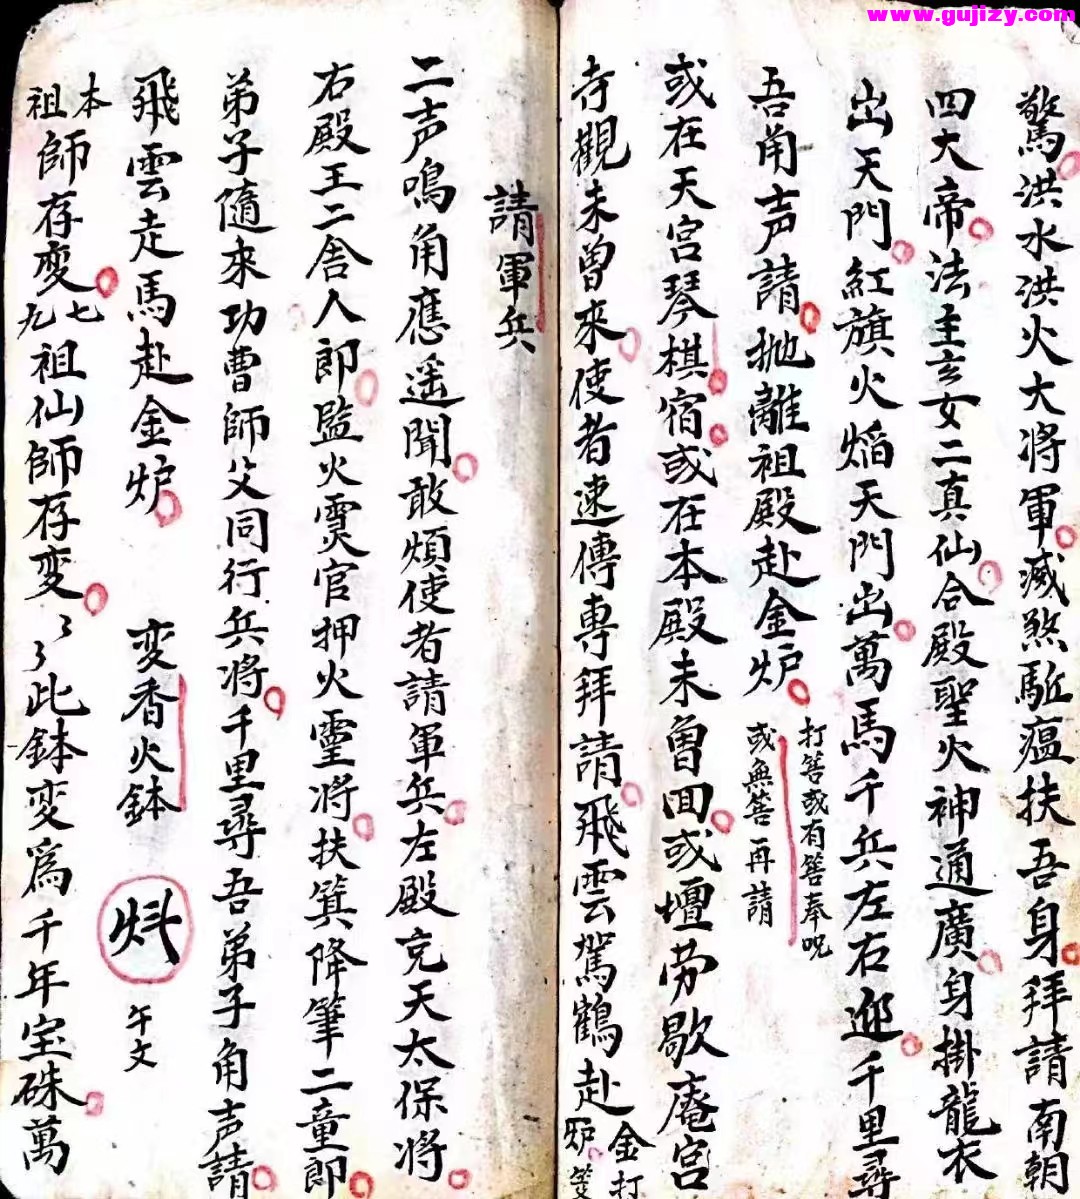 www.gujizy.com
驚洪水洪火大将軍滅煞駈瘟扶吾身拜請南朝
四大帝法主玄女二真仙合殿聖火神通廣身掛龍衣
出天門紅旗火焰天門出萬馬千兵左右迎千里尋
吾角声請抛離祖殿赴金炉
打筶或有筶奉呪
或無筶再請
或在天宮琴棋宿或在本殿未曾回或壇旁歇庵宮
寺觀未曾來使者速傳專拜請飛雲駕鶴赴金炉打筶
請軍兵
二声鳴角應遥聞敢煩使者請軍兵左殿亮天太保将
右殿王二舍人郎監火灵官押火灵将扶箕降筆二童郎
弟子隨來功曹師父同行兵将千里尋吾弟子角声請
飛雲走馬赴金炉 变香火鉢 午文
本祖師存変七九祖仙師存変〻〻此鉢変為千年宝硃萬